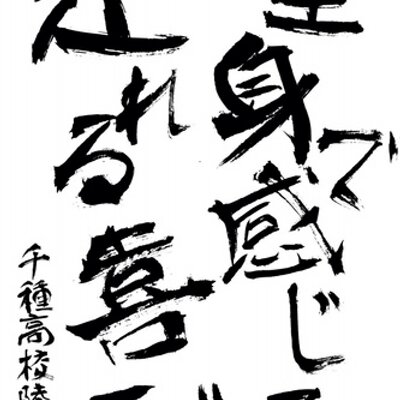 身で感じ
れる喜
千種高校陸